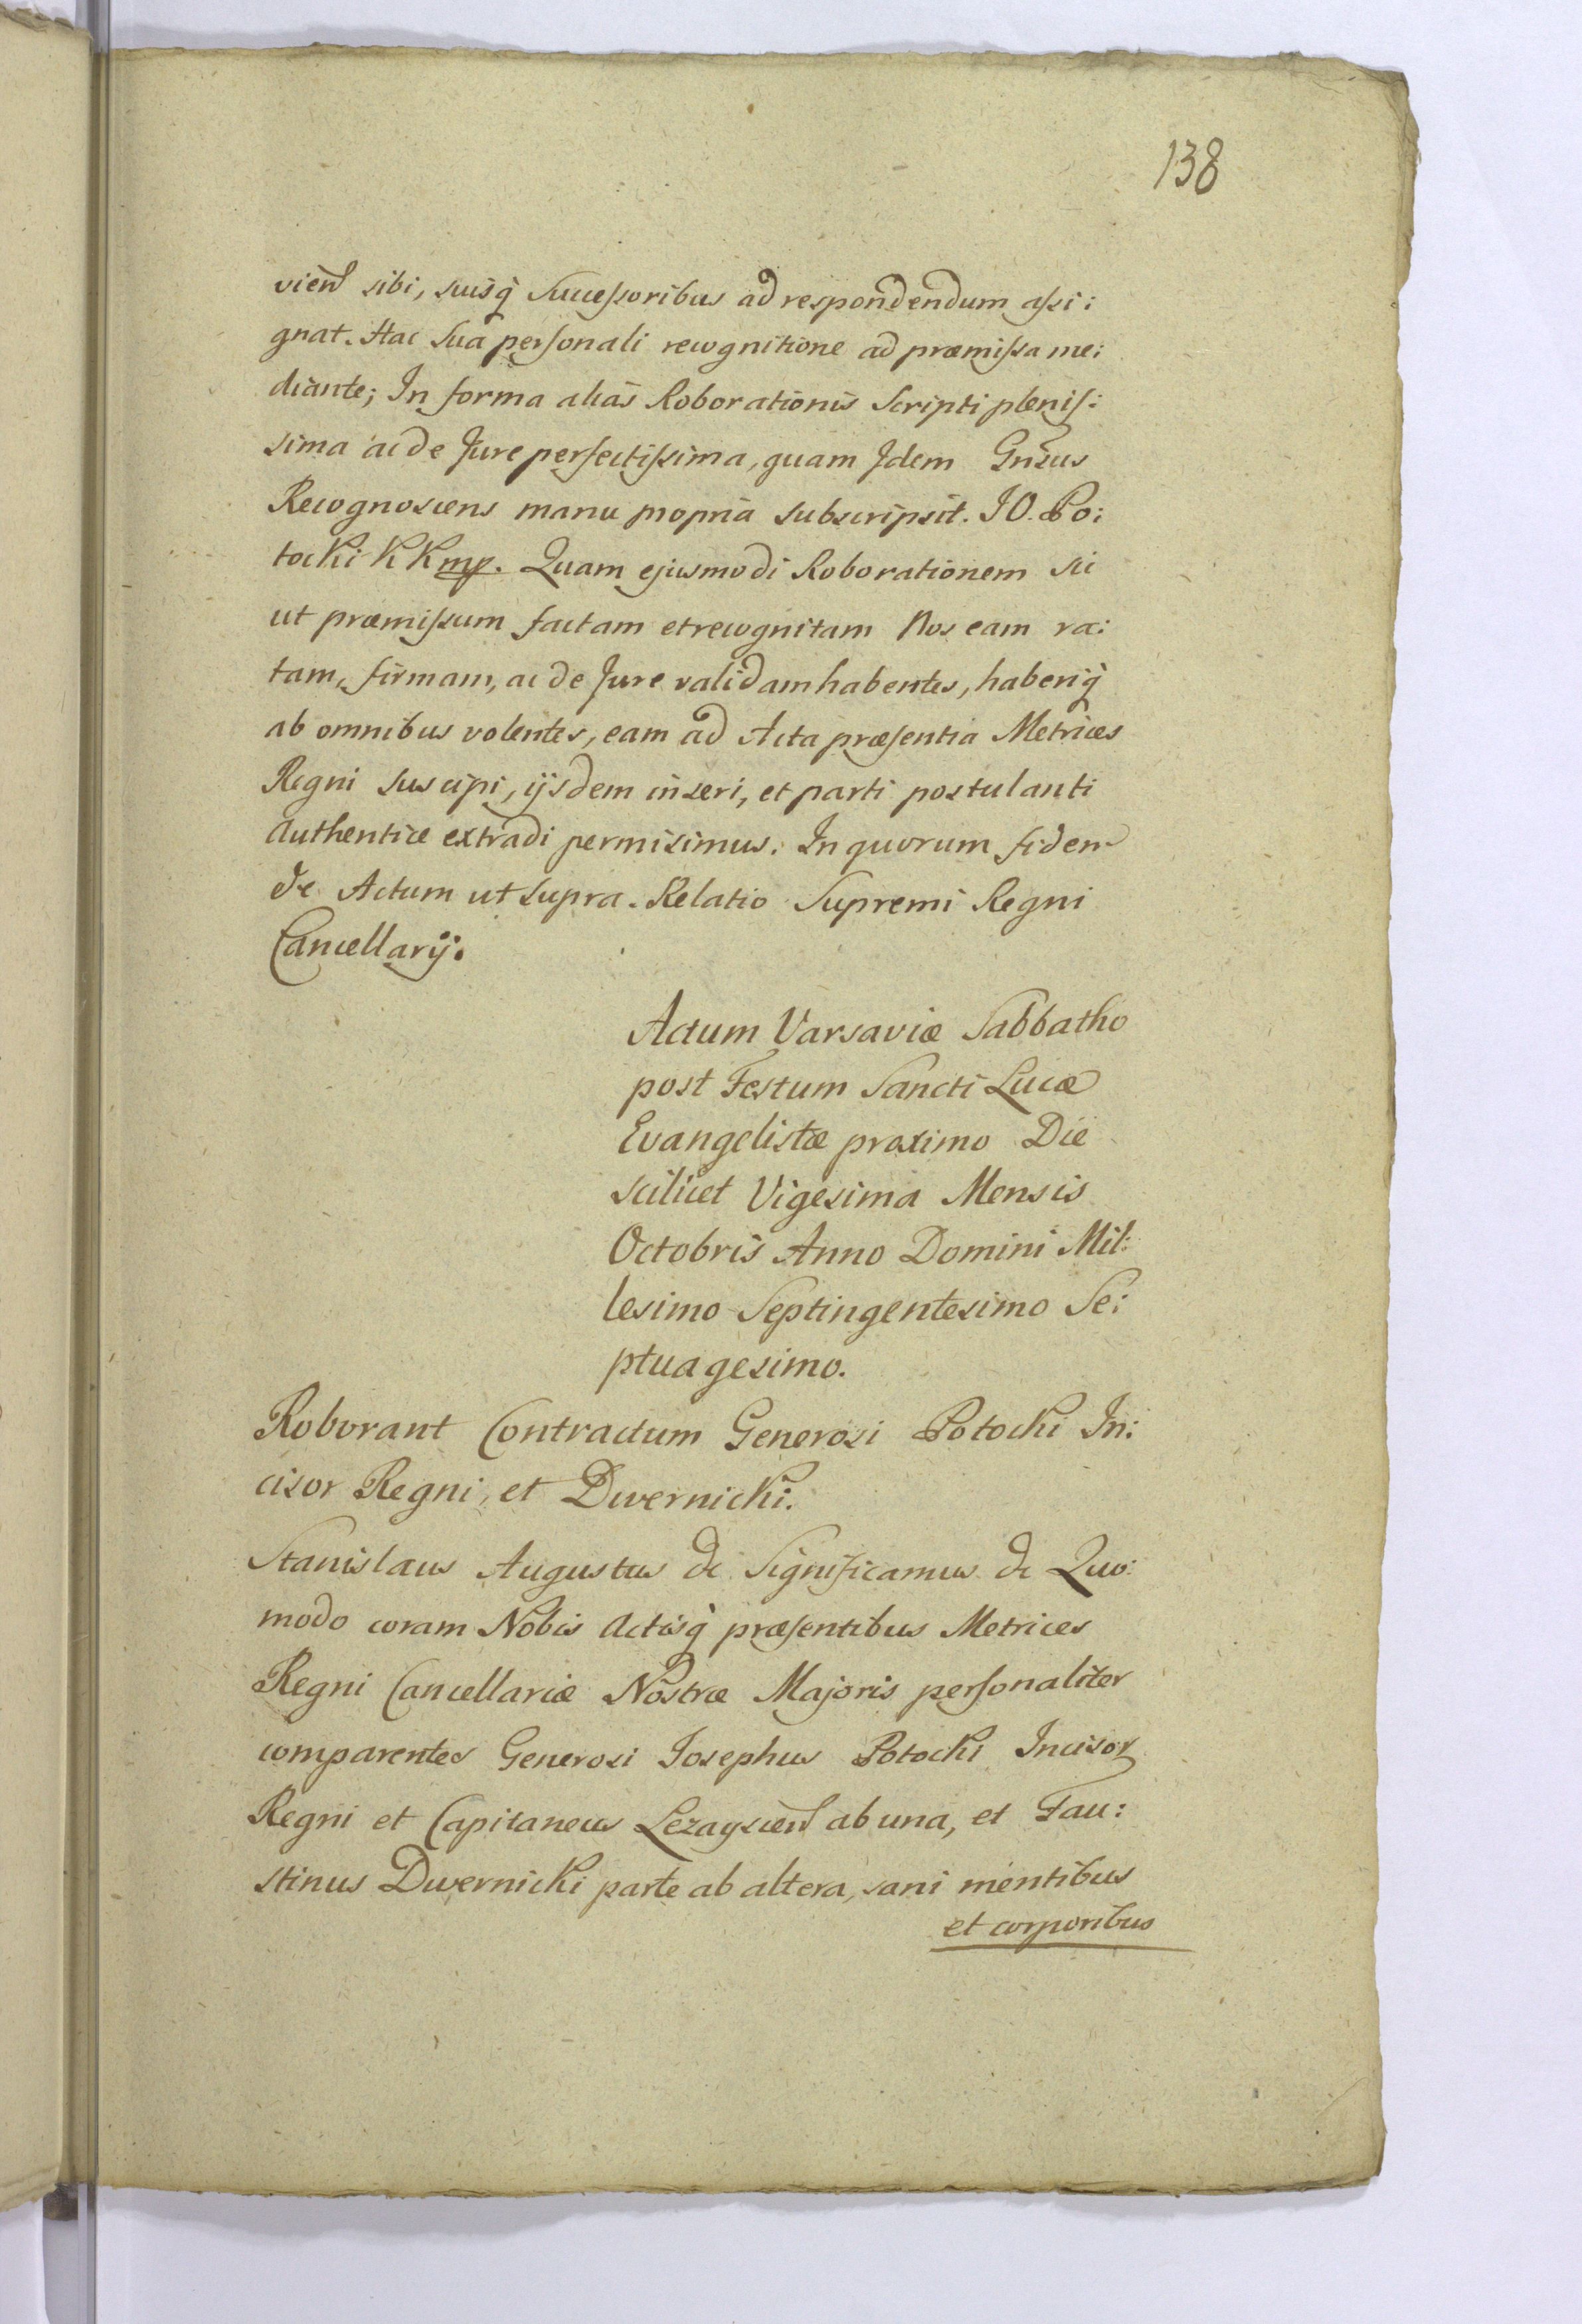 138
vien̄ sibi, suisq̀ Successoribus ad respondendum assi:
gnat. Hac Sua personali recognitione ad præmissa me:
diante; In forma alias Roborationis Scripti plenis:
sima ac de Jure perfectissima, quam Idem Gn̄sus
Recognoscens manu propria subscripsit. IO. Po:
tocki K K mp. Quam ejusmodi Roborationem sic
ut præmissum factam et recognitam Nos eam ra:
tam, firmam, ac de Jure validam habentes, haberiq̀
ab omnibus volentes, eam ad Acta præsentia Metrices
Regni suscipi, ijsdem inseri, et parti postulanti
authentice extradi permisimus. In quorum fidem
&c Actum ut supra. Relatio Supremi Regni
Cancellarij.
Actum Varsaviæ Sabbatho
post Festum Sancti Lucæ
Evangelistæ proximo Die
scilicet Vigesima Mensis
Octobris Anno Domini Mil:
lesimo Septingentesimo Se:
ptuagesimo.
Roborant Contractum Generosi Potocki In:
cisor Regni, et Dwernicki.
Stanislaus Augustus &c Significamus &c Quo:
modo coram Nobis Actisq̀ præsentibus Metrices
Regni Cancellariæ Nostræ Majoris personaliter
comparentes Generosi Josephus Potocki Incisor
Regni et Capitaneus Lezayscien̄ ab una, et Fau:
stinus Dwernicki parte ab altera, sani mentibus
et corporibus